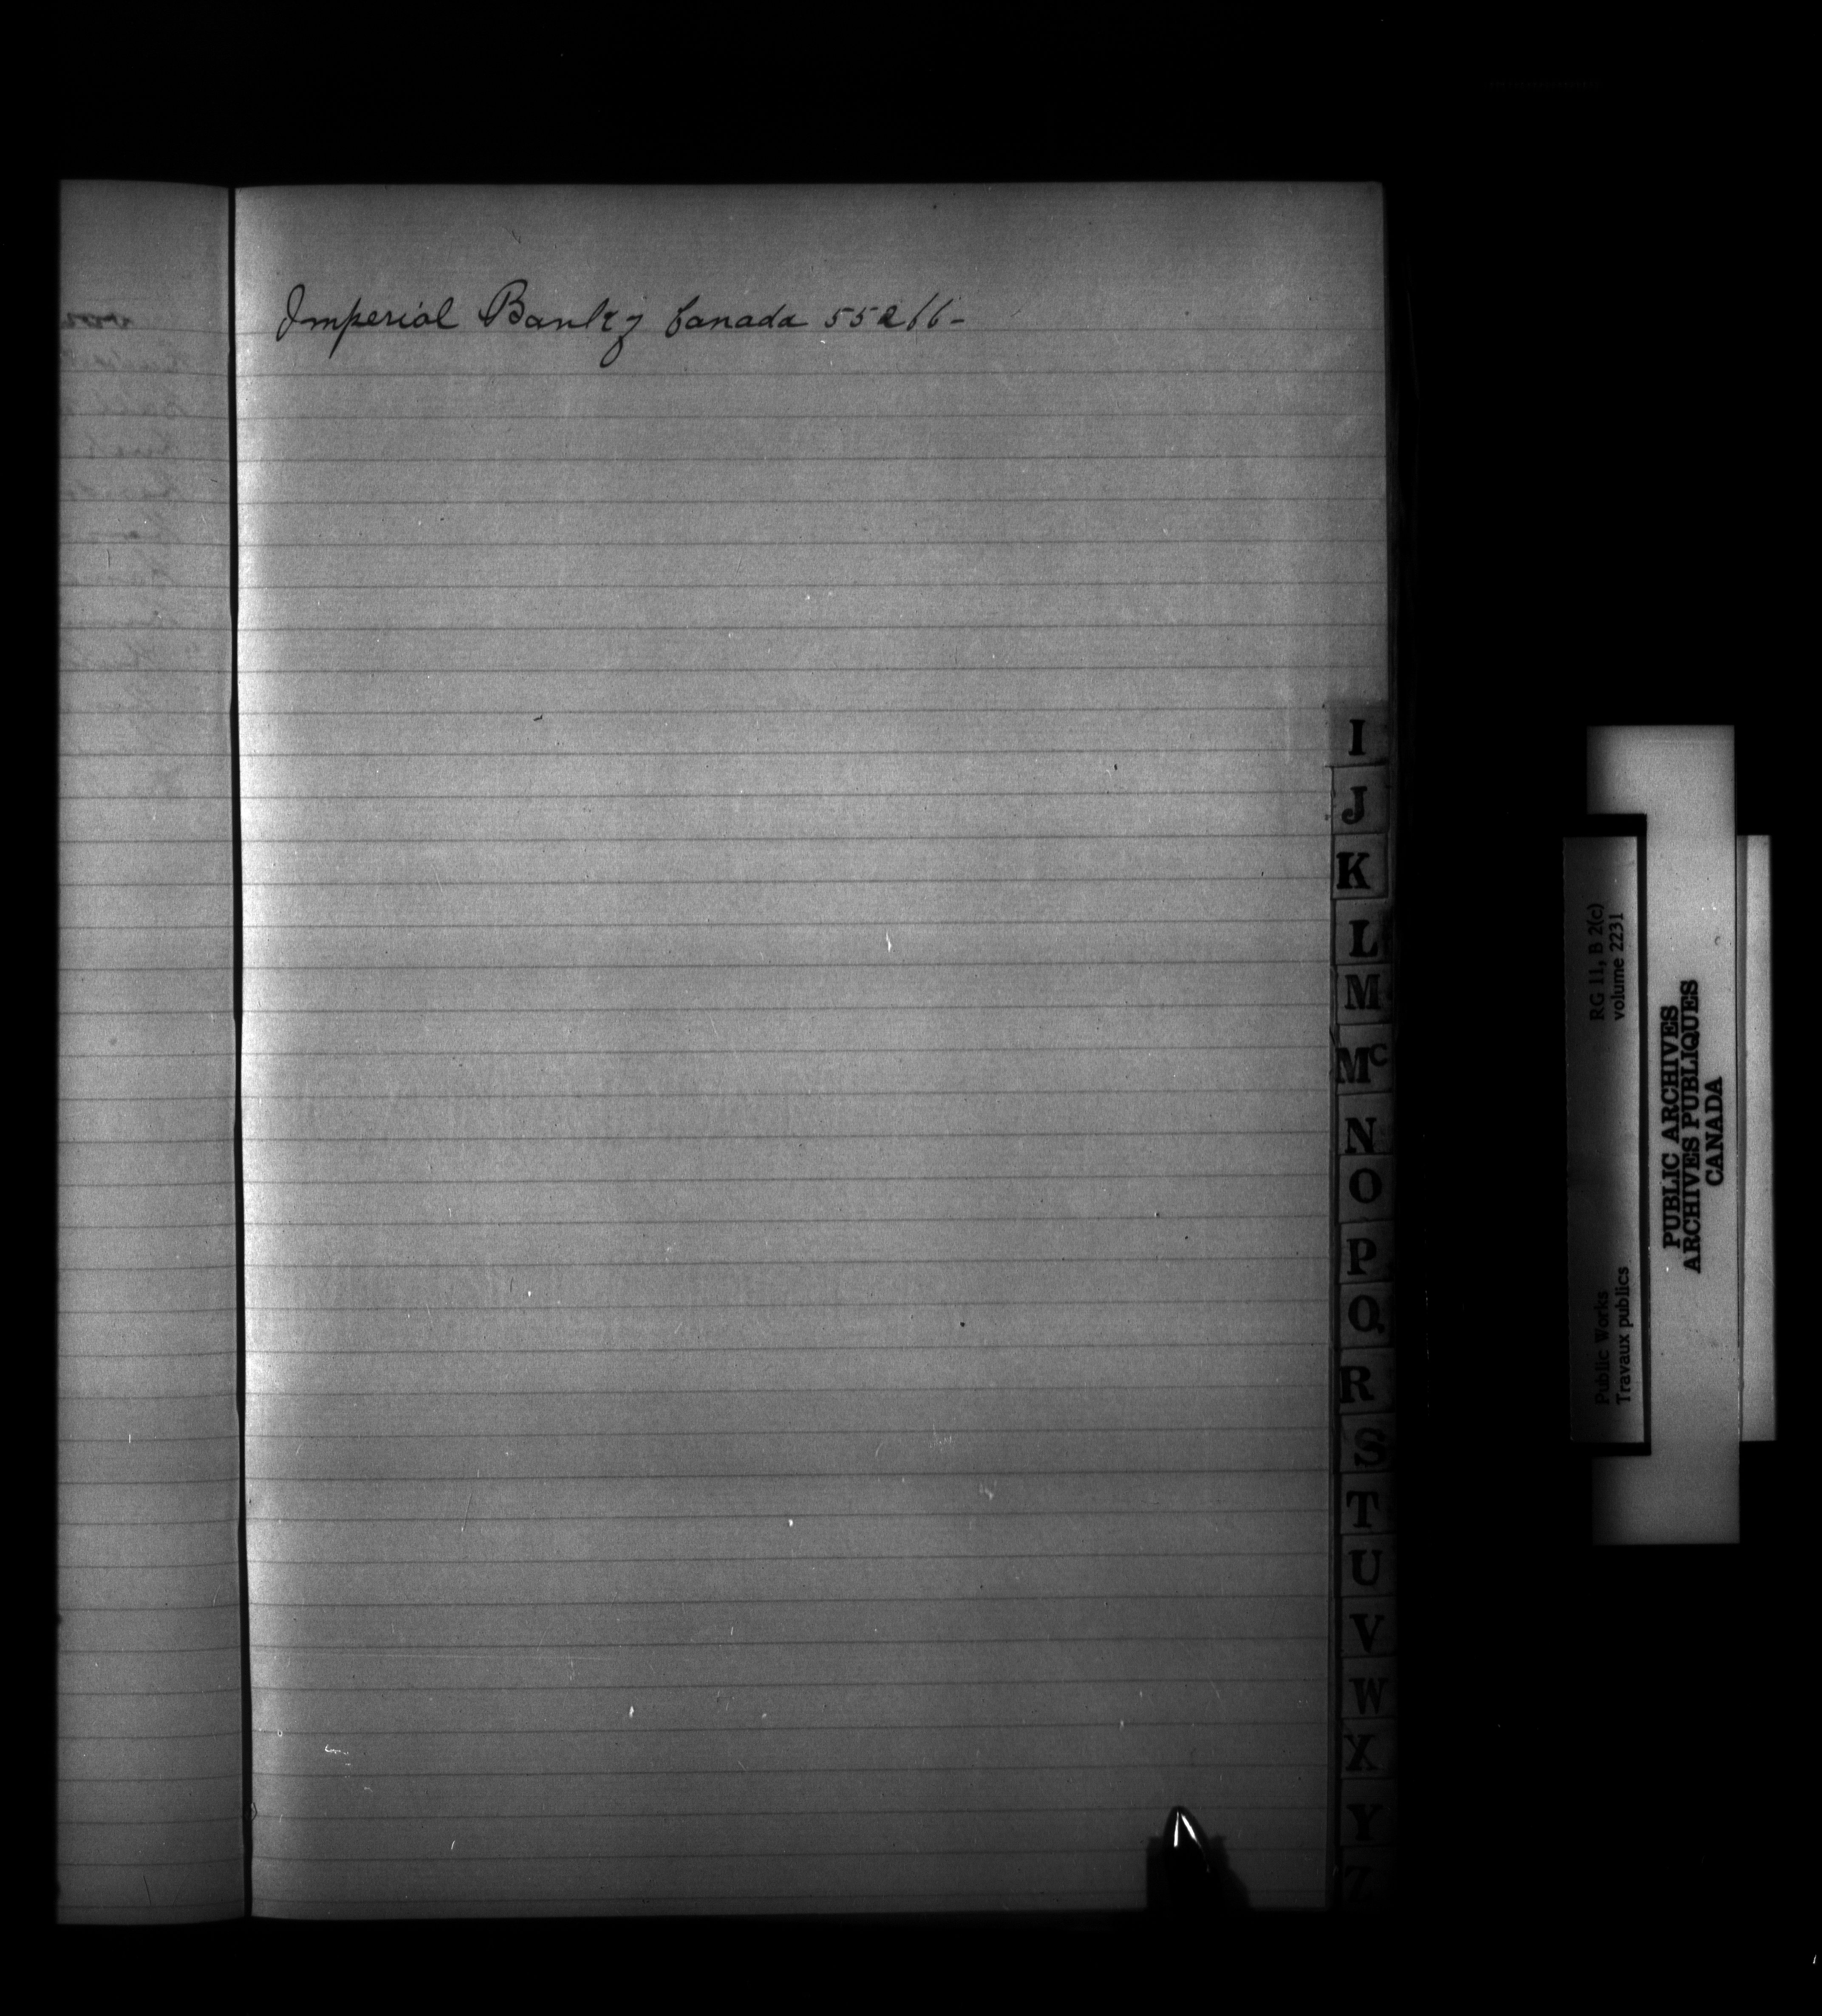 Imperial Bank of Canada 55266-
I
J
K
L
M
Mc
N
O
P
Q
R
S
T
U
V
W
X
Y
Z
RG 11, B 2(c)
volume 2231
Public Works
Travaux publics
PUBLIC ARCHIVES
ARCHIVES PUBLIQUES
CANADA